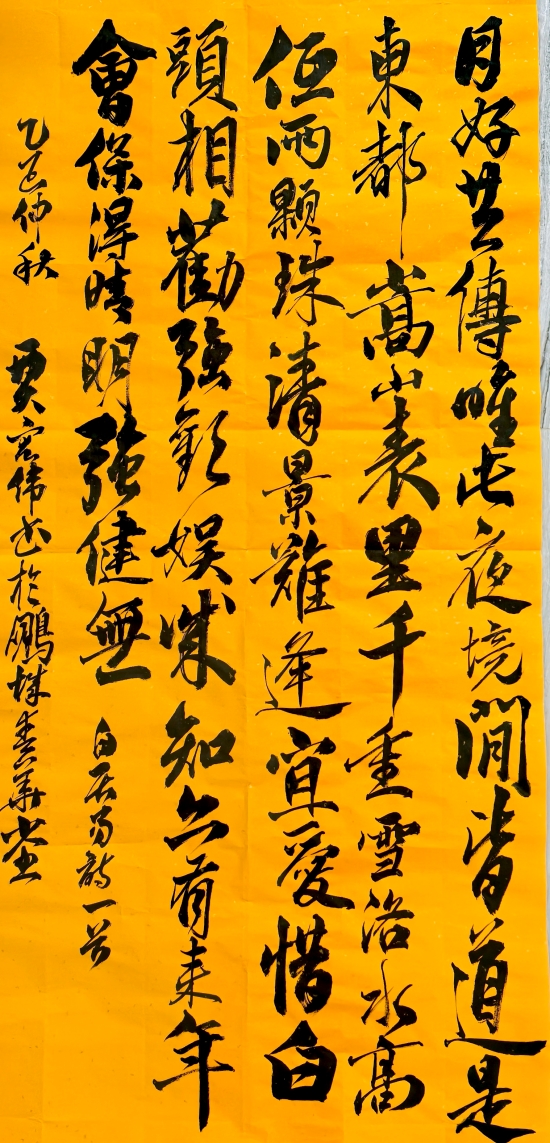 月好共傳唯此夜境閒皆道是
東都嵩山表里千重雪洛水高
低兩顆珠清景難逢宜愛惜白
頭相勸強歡娛誠知亦有來年
會保得晴明強健無
白居易詩一首
乙巳仲秋
賈宏偉书於鵬城春華堂